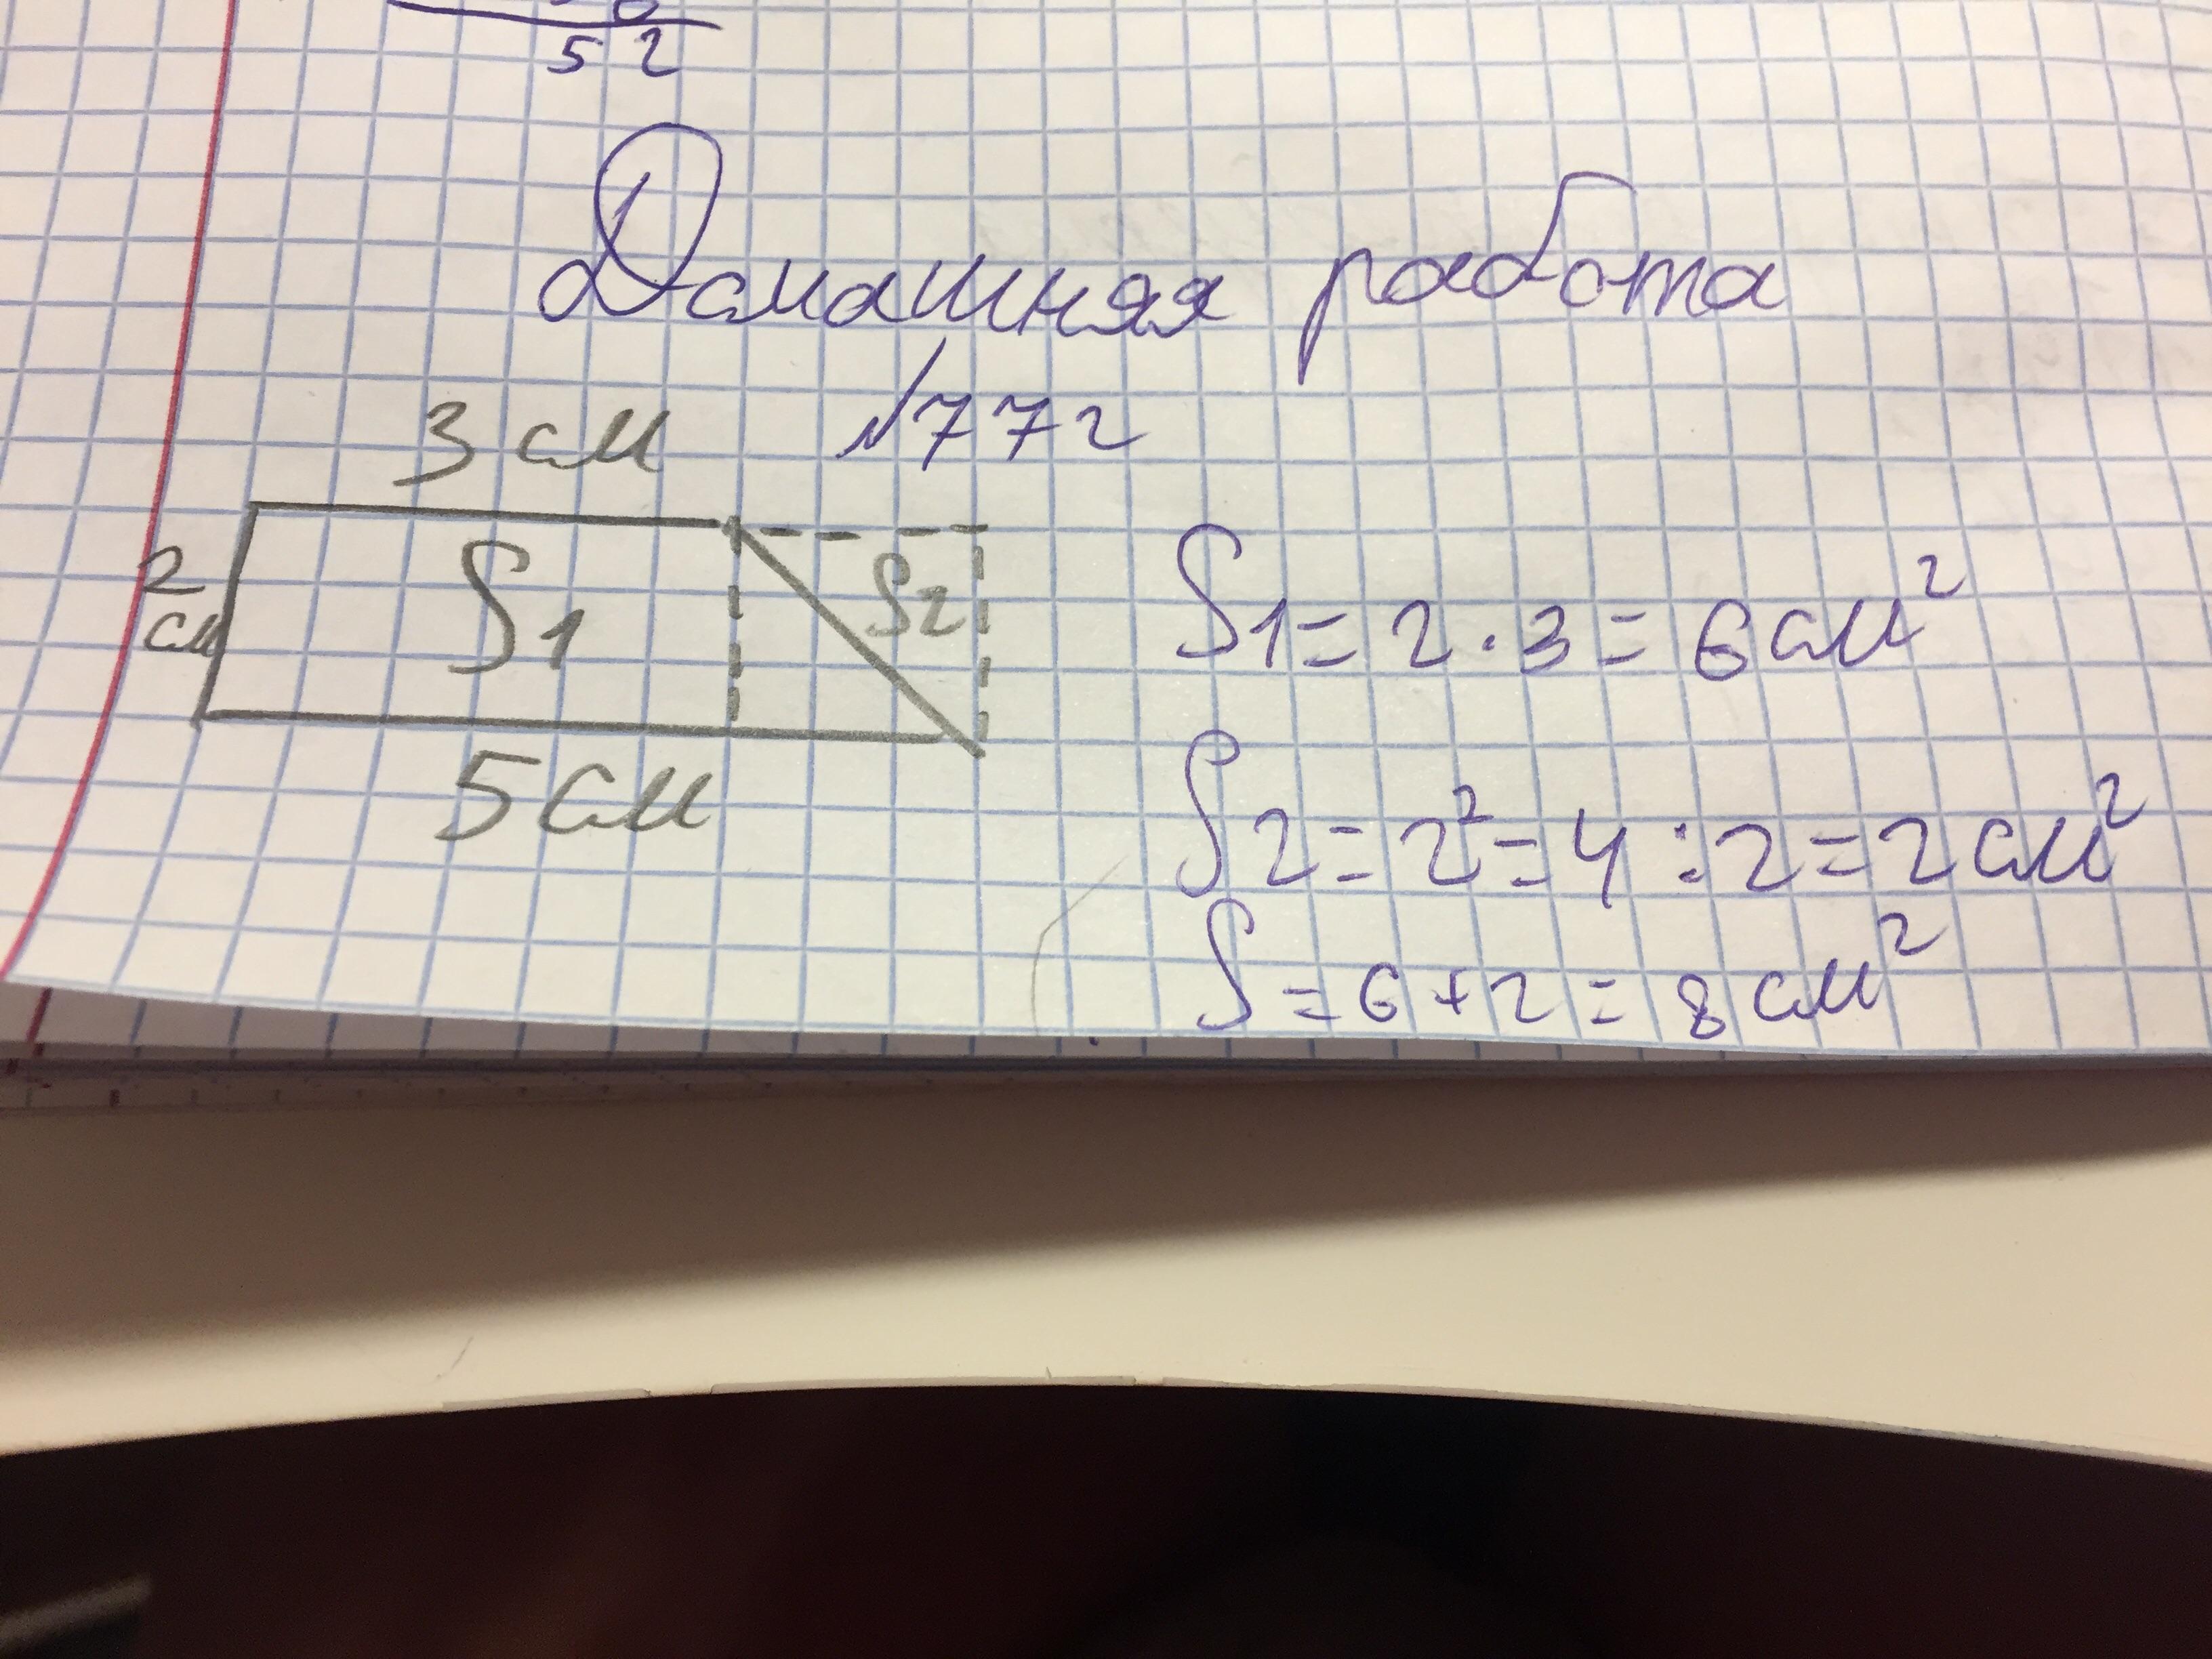 52
Домашняя работа
№772
3 см
2 см
S1
S2
5 см
S1 = 2 · 3 = 6 см²
S2 = 2² = 4 : 2 = 2 см²
S = 6 + 2 = 8 см²